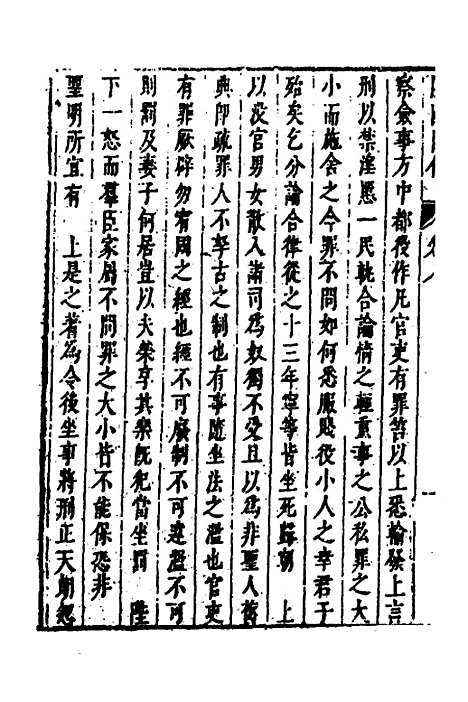 察僉事方中都役作凡官吏有罪笞以上悉輸發上言
刑以禁淫慝一民軌合論情之輕重事之公私罪之大
小而施舍之今罪不問如何悉服賤役小人之幸君子
殆矣乞分論合律從之十三年寧等皆坐死歸朝　上
以沒官男女散入諸司為奴獨不受且以為非聖人舊
典卽疏罪人不孥古之制也有事隨坐法之濫也官吏
有罪厥辟勿宥周之經也經不可廢制不可違濫不可
則罰及妻子何居豈以夫榮享其樂旣犯當坐罰　陛
下一怒而羣臣家屬不問罪之大小皆不能保恐非
聖明所宜有　上是之著為令後坐事將刑正天朗忽